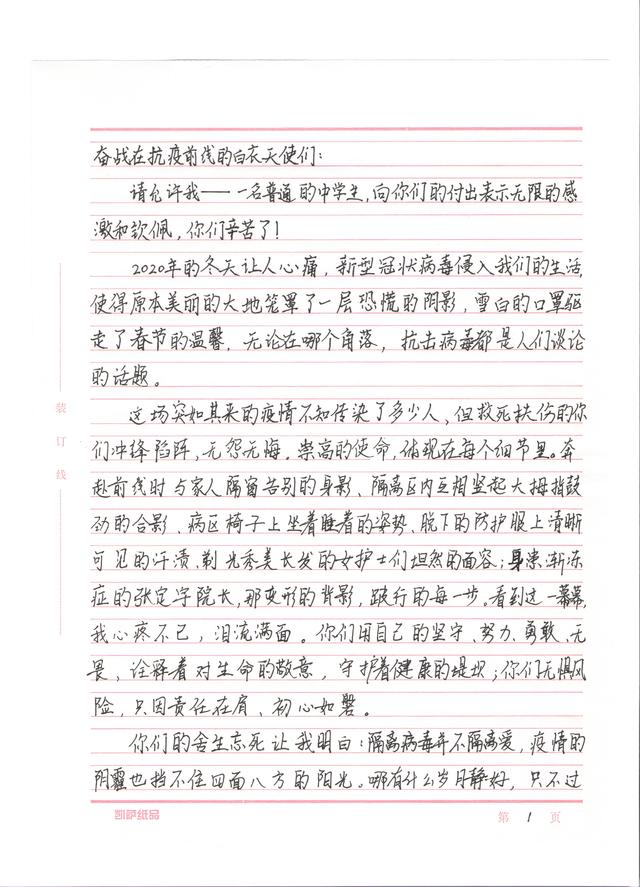 奋战在抗疫前线的白衣天使们:
请允许我——一名普通的中学生,向你们的付出表示无限的感
激和钦佩,你们辛苦了!
2020年的冬天让人心痛,新型冠状病毒侵入我们的生活,
使得原本美丽的大地笼罩了一层恐慌的阴影,雪白的口罩驱
走了春节的温馨,无论在哪个角落,抗击病毒都是人们谈论
的话题。
这场突如其来的疫情不知传染了多少人,但救死扶伤的你
们冲锋陷阵,无怨无悔。崇高的使命,体现在每个细节里。奔
赴前线时与家人隔窗告别的身影、隔离区内互相竖起大拇指鼓
劲的合影、病区椅子上坐着睡着的姿势、脱下的防护服上清晰
可见的汗渍、剃光秀美长发的女护士们坦然的面容;身患渐冻
症的张定宇院长,那变形的背影,跛行的每一步。看到这一幕幕,
我心疼不已,泪流满面。你们用自己的坚守、努力、勇敢、无
畏,诠释着对生命的敬意,守护着健康的堤坝;你们无惧风
险,只因责任在肩、初心如磐。
你们的舍生忘死让我明白:隔离病毒并不隔离爱,疫情的
阴霾也挡不住四面八方的阳光。哪有什么岁月静好,只不过
装
订
线
凯萨纸品
第 1 页